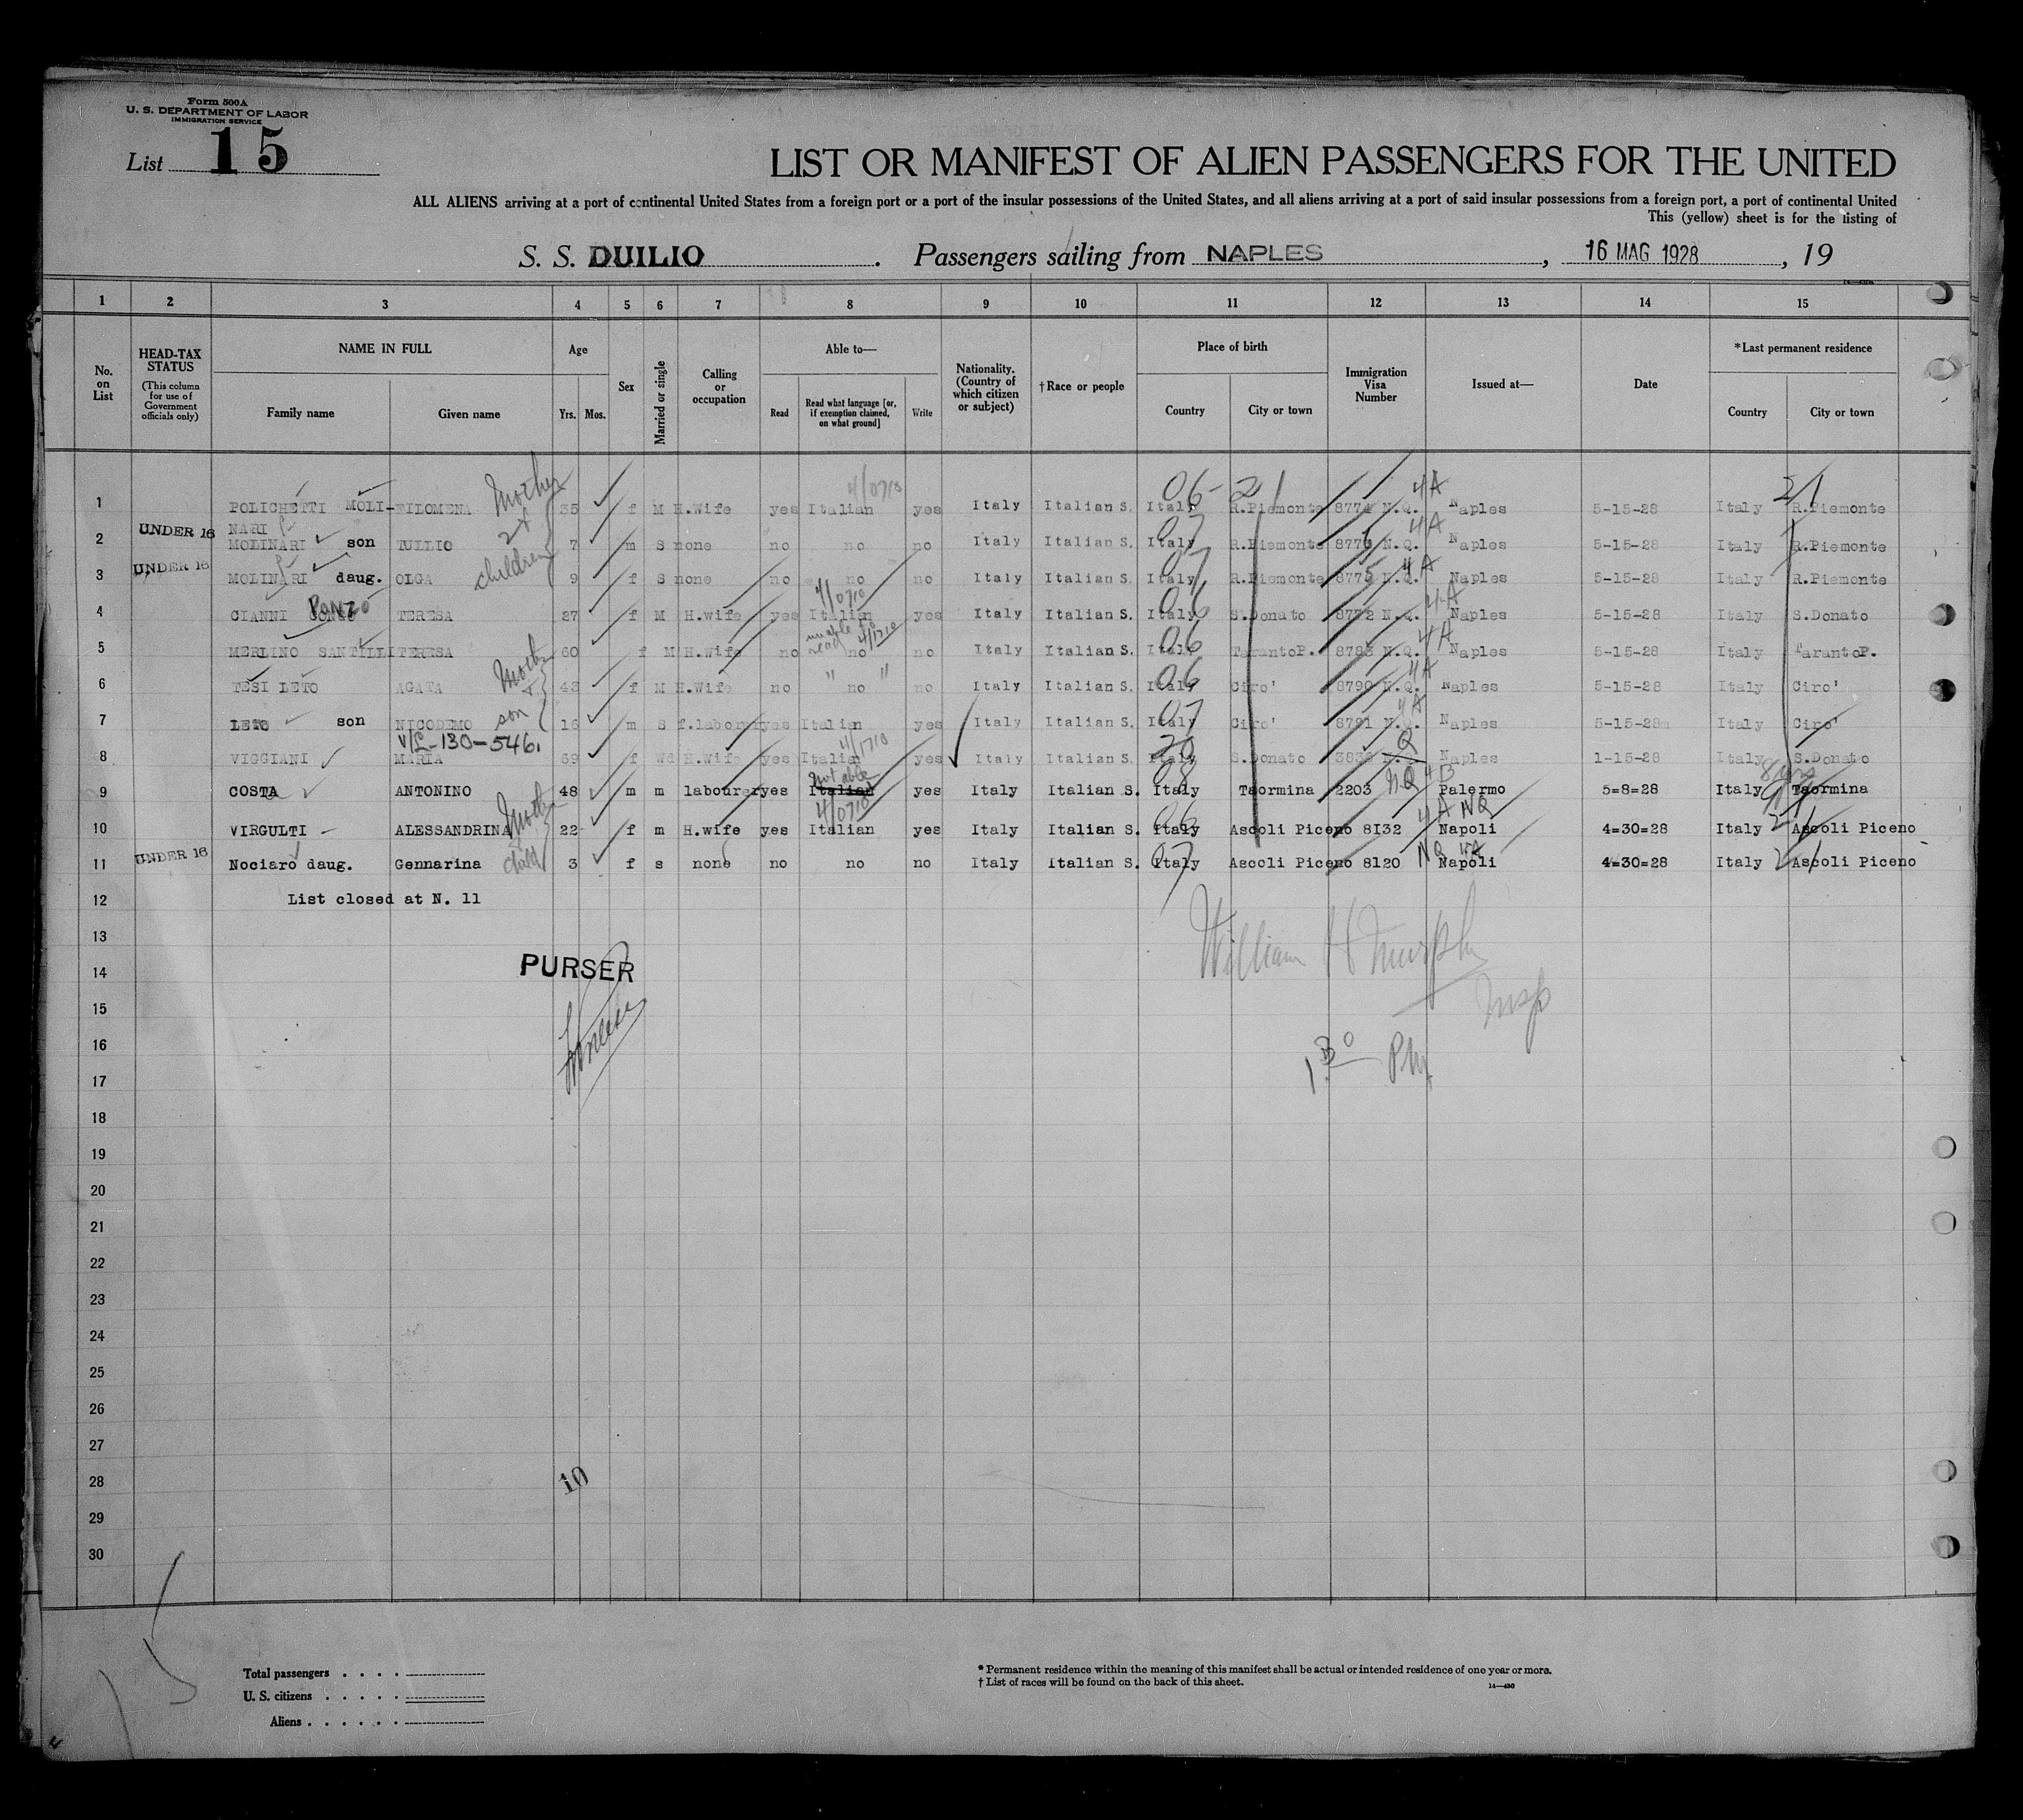 Form 500A
U. S. DEPARTMENT OF LABOR
IMMIGRATION SERVICE
List 15
LIST OR MANIFEST OF ALIEN PASSENGERS FOR THE UNITED
ALL ALIENS arriving at a port of continental United States from a foreign port or a port of the insular possessions of the United States, and all aliens arriving at a port of said insular possessions from a foreign port, a port of continental United
This (yellow) sheet is for the listing of
S. S. DUILIO . Passengers sailing from NAPLES , 16 MAG 1928 , 19
1 2 3 4 5 6 7 8 9 10 11 12 13 14 15
No. on List
HEAD-TAX STATUS
(This column for use of Government officials only)
NAME IN FULL
Family name Given name
Age
Yrs. Mos.
Sex
Married or single
Calling or occupation
Able to—
Read
Read what language [or, if exemption claimed, on what ground]
Write
Nationality. (Country of which citizen or subject)
† Race or people
Place of birth
Country City or town
Immigration Visa Number
Issued at—
Date
*Last permanent residence
Country City or town
Mother 2+ children
1 POLICHETTI MOLI- FILOMENA 35 f M H.Wife yes Italian yes Italy Italian S. Italy R.Piemonte 8774 N.Q. 4A Naples 5-15-28 Italy R.Piemonte
NARI
2 UNDER 16 MOLINARI son TULLIO 7 m S none no no no Italy Italian S. Italy R.Piemonte 8776 N.Q. 4A Naples 5-15-28 Italy R.Piemonte
3 UNDER 16 MOLINARI daug. OLGA 9 f S none no no no Italy Italian S. Italy R.Piemonte 8775 N.Q. 4A Naples 5-15-28 Italy R.Piemonte
4/0710
4 CIANNI PONZO TERESA 27 f M H.wife yes Italian yes Italy Italian S. Italy S.Donato 8772 N.Q. 4-A Naples 5-15-28 Italy S.Donato
unable to read 4/1710
5 MERLINO SANTILLI TERESA 60 f M H.wife no no no Italy Italian S. Italy TarantoP. 8783 N.Q. 4A Naples 5-15-28 Italy TarantoP.
Moth + son
6 TESI LETO AGATA 43 f M H.Wife no " no " no Italy Italian S. Italy Ciro' 8790 N.Q. 4A Naples 5-15-28 Italy Ciro'
7 LETO son NICODEMO 16 m S f.laborer yes Italian yes Italy Italian S. Italy Ciro' 8791 N.Q. 4A Naples 5-15-28 Italy Ciro'
V/L-130-546.
8 VIGGIANI MARIA 69 f Wd H.Wife yes Italian yes Italy Italian S. Italy S.Donato Q Naples 1-15-28 Italy S.Donato
not able
9 COSTA ANTONINO 48 m m labourer yes Italian yes Italy Italian S. Italy Taormina 2203 NQ 4B Palermo 5=8=28 Italy Taormina
4/0710
Moth + child
10 VIRGULTI ALESSANDRINA 22 f m H.wife yes Italian yes Italy Italian S. Italy Ascoli Piceno 8132 4A NQ Napoli 4=30=28 Italy Ascoli Piceno
11 UNDER 16 Nociaro daug. Gennarina 3 f s none no no no Italy Italian S. Italy Ascoli Piceno 8120 NQ 4A Napoli 4=30=28 Italy Ascoli Piceno
12 List closed at N. 11
13
William H Murphy
14 PURSER
15
Insp
16
1 30 PM
17
18
19
20
21
22
23
24
25
26
27
28 10
29
30
Total passengers . . . .
U. S. citizens . . . . .
Aliens . . . . . .
* Permanent residence within the meaning of this manifest shall be actual or intended residence of one year or more.
† List of races will be found on the back of this sheet.
14—430